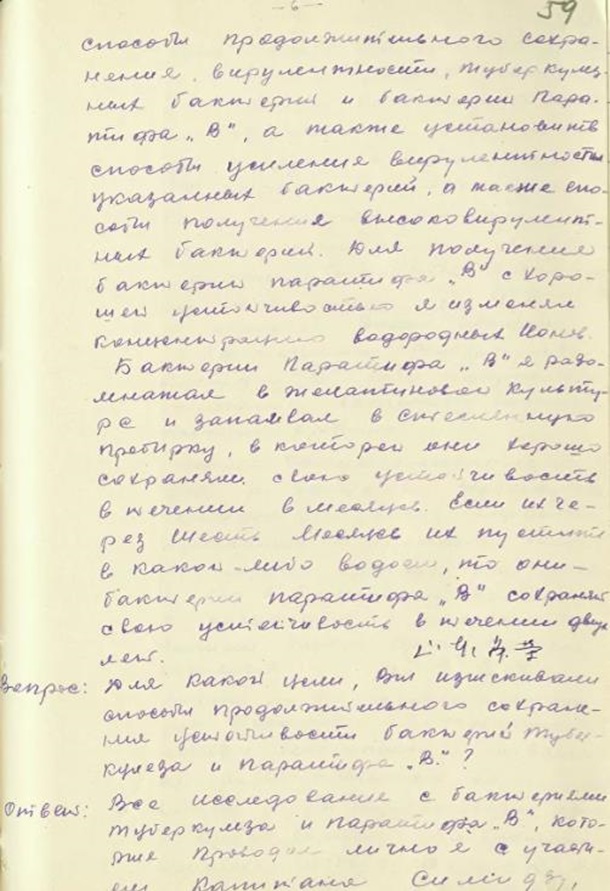 — 6 —
59
способы продолжительного сохра-
нения, вирулентности, туберкулез-
ных бактерий и бактерии Пара-
тифа „В", а также установить
способы усиления вирулентности
указанных бактерий, а также спо-
собы получения высоковирулент-
ных бактерий. Для получения
бактерии паратифа „В" с хоро-
шей устойчивостью я изменял
концентрацию водородных ионов.
Бактерии Паратифа „В" я разм-
ножал в желатиновой культу-
ре и запаивал в стеклянную
пробирку, в которой они хорошо
сохраняли свою устойчивость
в течении 6 месяцев. Если их че-
рез шесть месяцев их пустить
в какой-либо водоем, то они –
бактерии паратифа „В" сохранят
свою устойчивость в течении двух
лет.
Вопрос: Для какой цели, Вы изыскивали
способы продолжительного сохране-
ния устойчивости бактерий тубер-
кулеза и паратифа „В"?
Ответ: Все исследование с бактериями
туберкулеза и паратифа „В", кото-
рые проводил лично я с участи-
ем капитана